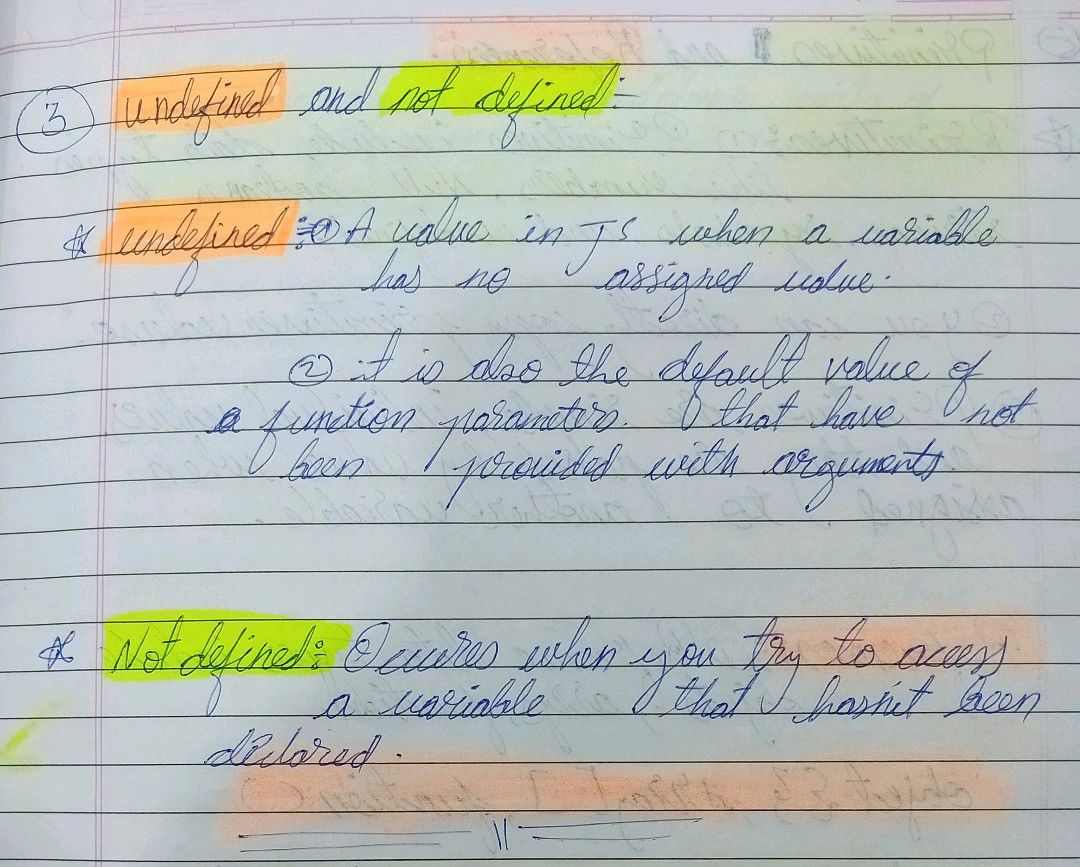 ③ undefined and not defined:-
* undefined :- ① A value in JS when a variable
has no assigned value.
② it is also the default value of
a function parameters. that have not
been provided with arguments
* Not defined: Occures when you try to acess
a variable that hasn't been
declared.